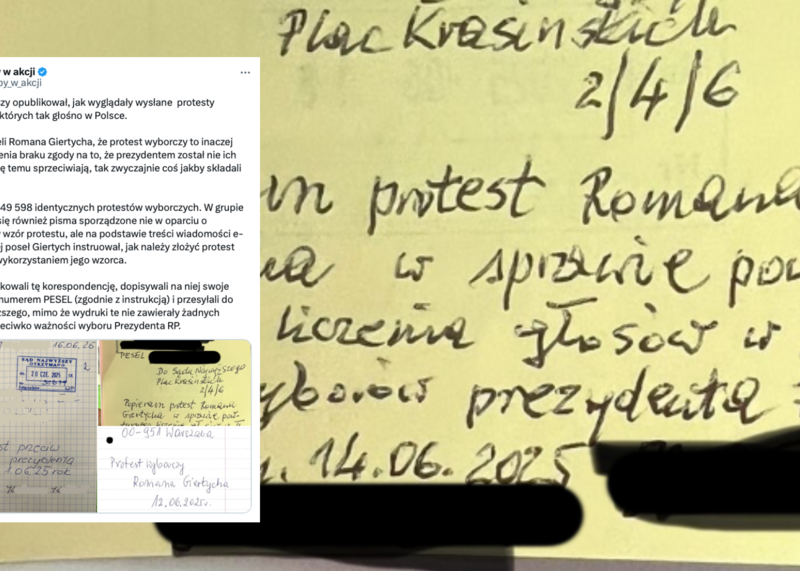 w akcji
by_w_akcji
zy opublikował, jak wyglądały wysłane protesty
których tak głośno w Polsce.
li Romana Giertycha, że protest wyborczy to inaczej
enia braku zgody na to, że prezydentem został nie ich
ę temu sprzeciwiają, tak zwyczajnie coś jakby składali
49 598 identycznych protestów wyborczych. W grupie
się również pisma sporządzone nie w oparciu o
wzór protestu, ale na podstawie treści wiadomości e-
j poseł Giertych instruował, jak należy złożyć protest
wykorzystaniem jego wzorca.
kowali tę korespondencję, dopisywali na niej swoje
numerem PESEL (zgodnie z instrukcją) i przesyłali do
ższego, mimo że wydruki te nie zawierały żadnych
eciwko ważności wyboru Prezydenta RP.
16.06.26
SĄD NAJWYŻSZY
OTRZYMANO
20 CZE. 2025
2
st przeciw
prezydenta
1.06.25 rok
PESEL
Do Sądu Najwyższego
Plac Krasińskich
2/4/6
Popieram protest Romana
Giertycha w sprawie pow
00-951 Warszawa
Protest wyborczy
Romana Giertycha
12.06.2025r.
Plac Krasińskich
2/4/6
m protest Romana
ha w sprawie pow
liczenia głosów w
yborów prezydenta
. 14.06.2025